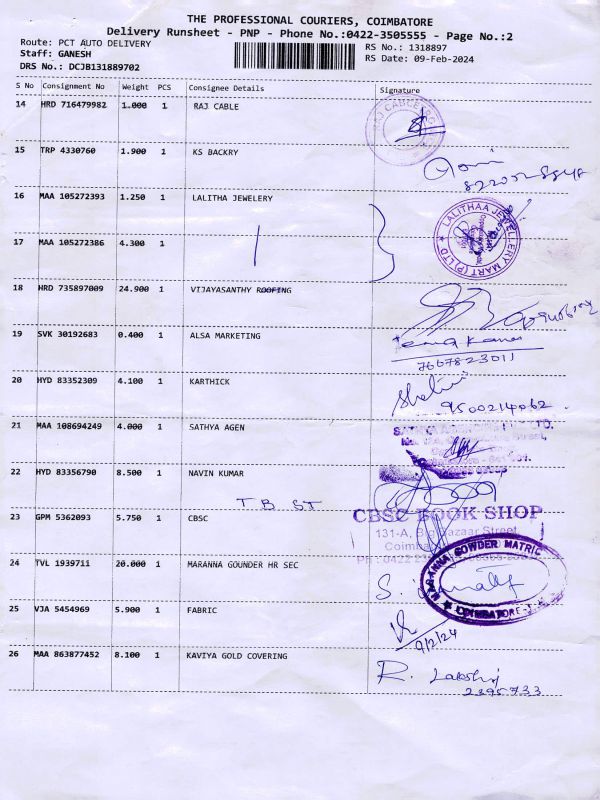 THE PROFESSIONAL COURIERS, COIMBATORE
Delivery Runsheet - PNP - Phone No.:0422-3505555 - Page No.:2
Route: PCT AUTO DELIVERY
RS No.: 1318897
Staff: GANESH
RS Date: 09-Feb-2024
DRS No.: DCJB131889702
S No Consignment No Weight PCS Consignee Details Signature
14 HRD 716479982 1.000 1 RAJ CABLE
15 TRP 4330760 1.900 1 KS BACKRY
16 MAA 105272393 1.250 1 LALITHA JEWELERY
LALITHAA JEWELLERY MART (P) LTD
17 MAA 105272386 4.300 1
18 HRD 735897009 24.900 1 VIJAYASANTHY ROOFING
19 SVK 30192683 0.400 1 ALSA MARKETING
7667823011
20 HYD 83352309 4.100 1 KARTHICK
Shalini
9500214062
21 MAA 108694249 4.000 1 SATHYA AGEN
22 HYD 83356790 8.500 1 NAVIN KUMAR
T B ST
23 GPM 5362093 5.750 1 CBSC
CBSC BOOK SHOP
131-A, Big Bazaar Street
24 TVL 1939711 20.000 1 MARANNA GOUNDER HR SEC
MARANNA GOWDER MATRIC
COIMBATORE
25 VJA 5454969 5.900 1 FABRIC
9/2/24
26 MAA 863877452 8.100 1 KAVIYA GOLD COVERING
R.
2395733